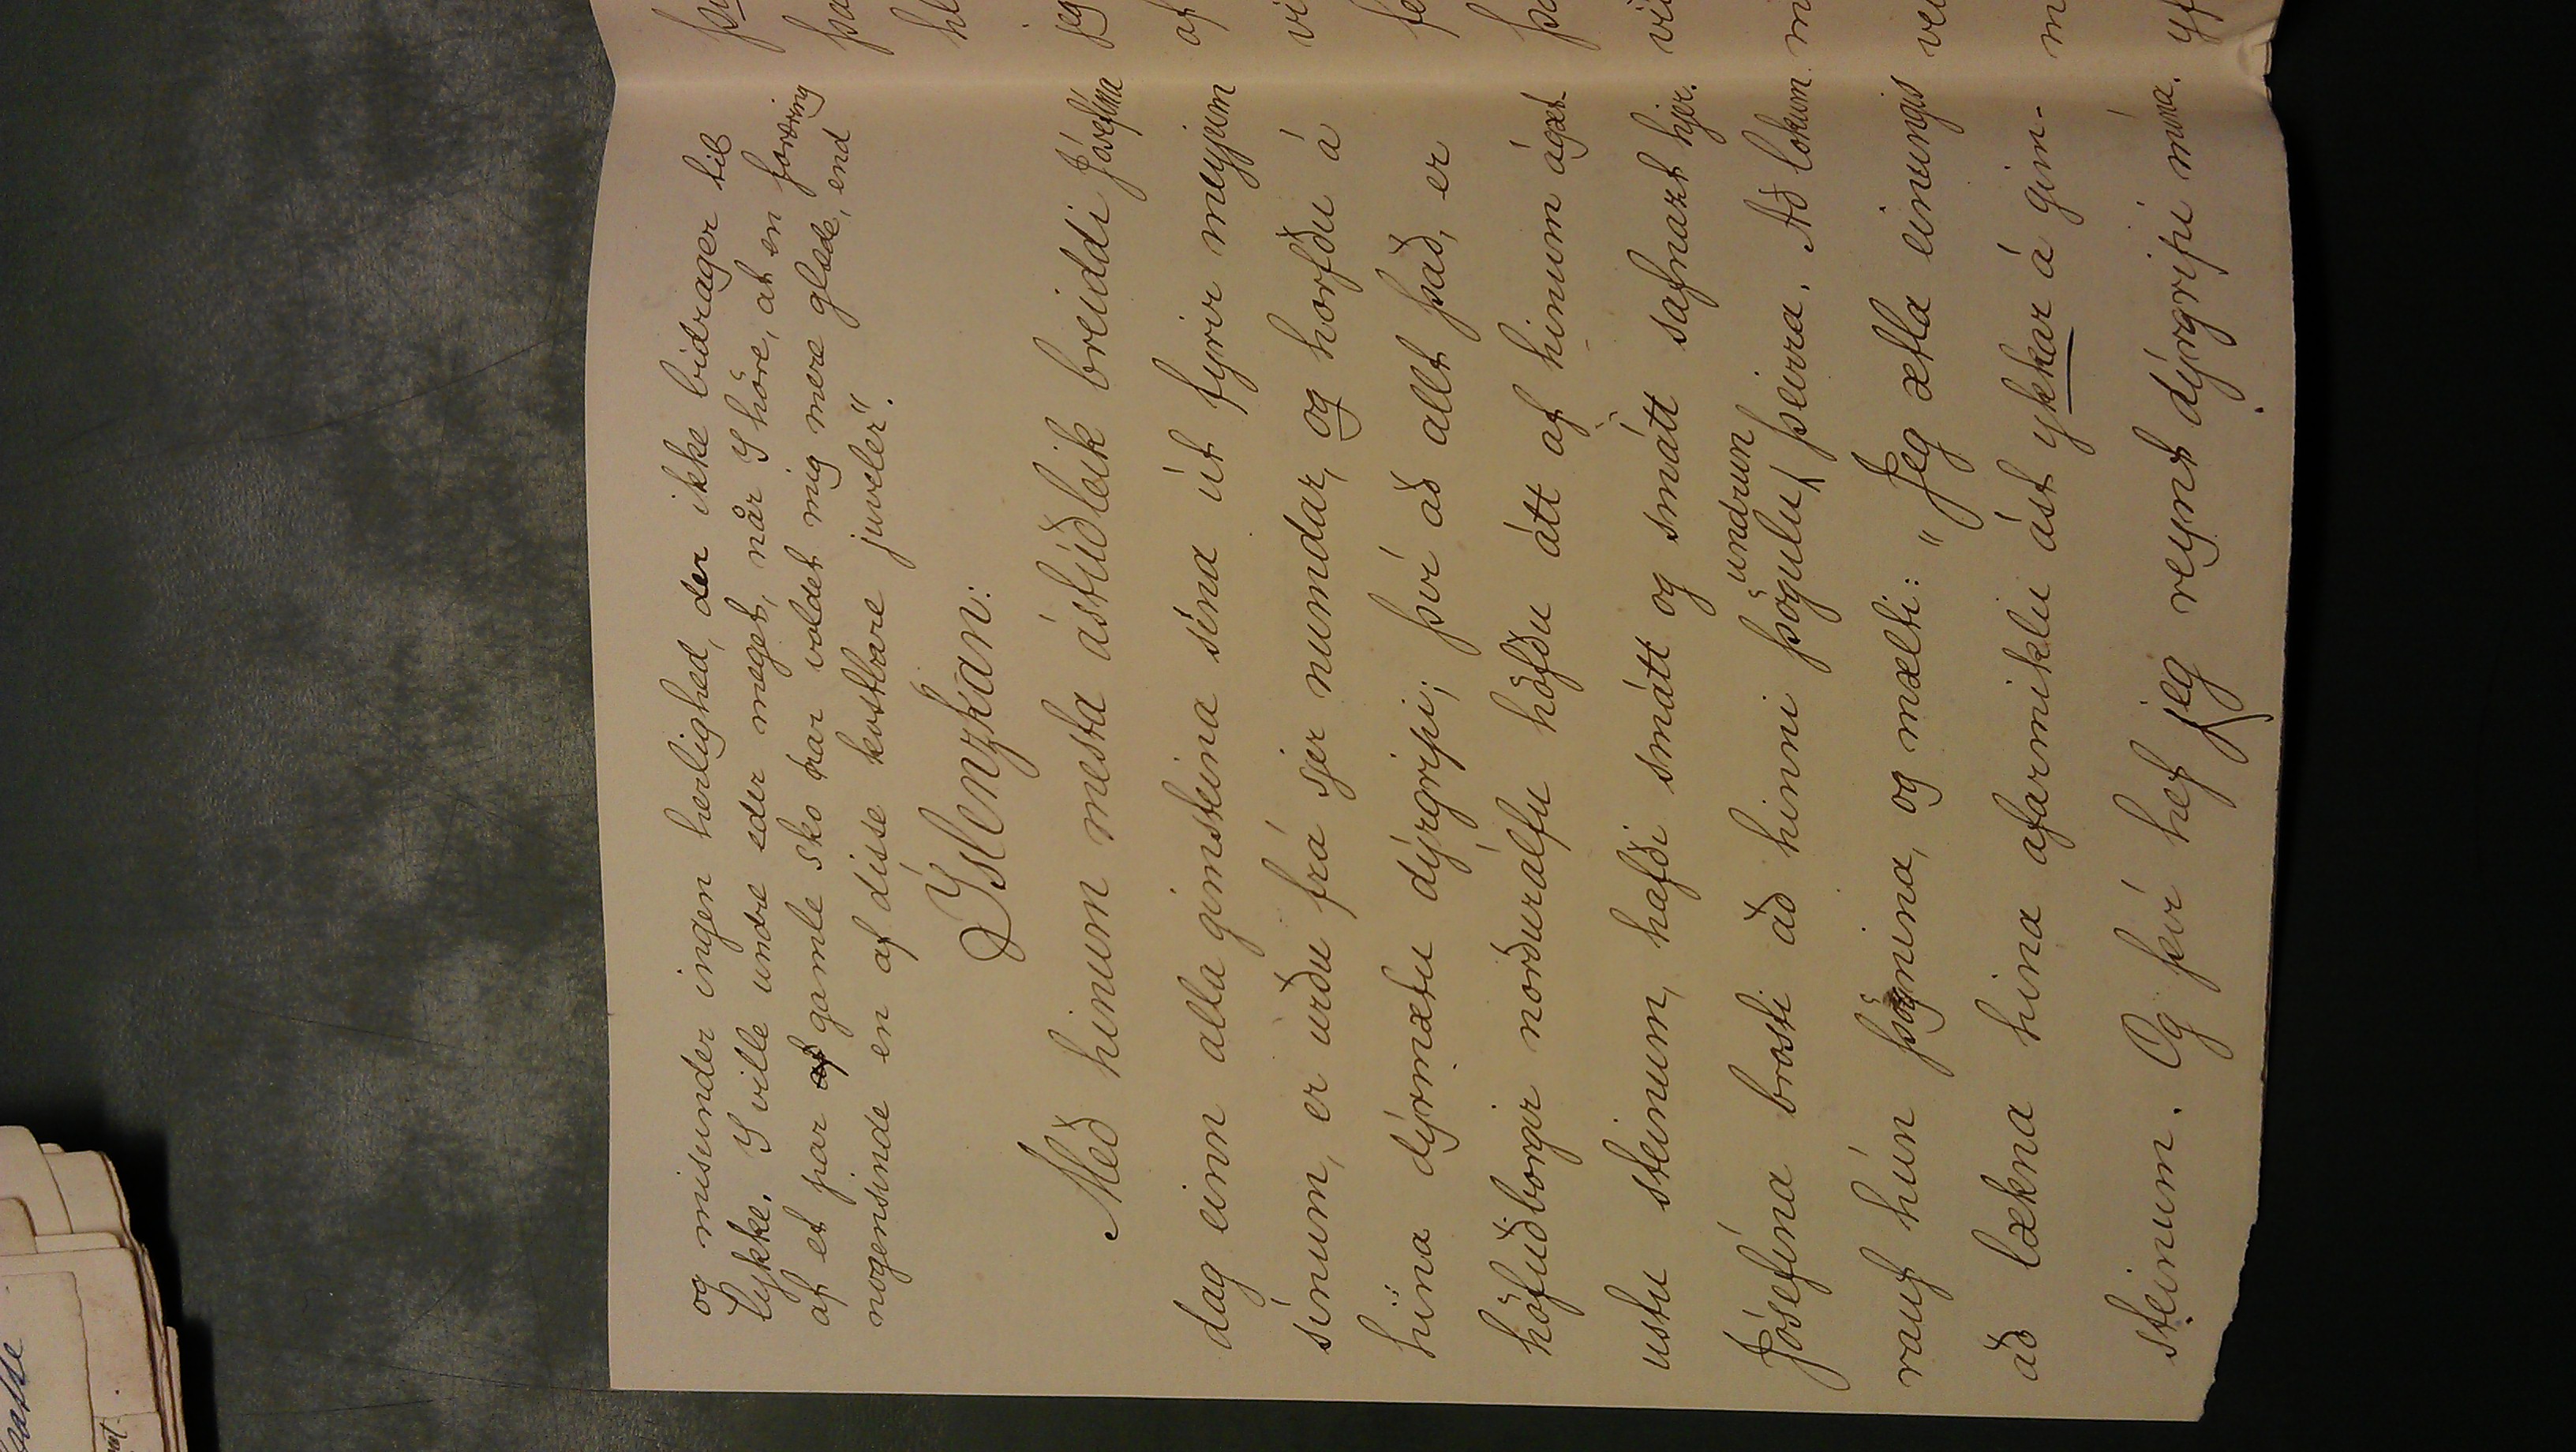 og misunder ingen herlighed, der ikke bidrager til
lykke. I ville undre eder meget, når I höre, at en foræring
af et par af gamle sko har voldet mig mere glæde, end
nogensinde en af disse kostbare juveler".
Íslenzkan:
Með hinum mesta ástúðleik breiddi Jósefína
dag einn alla gimsteina sína út fyrir meyjum
sínum, er urðu frá sjer numdar, og horfðu á
hina dýrmætu dýrgripi; því að allt það, er
höfuðborgir norðurálfu höfðu átt af hinum ágæt-
ustu steinum, hafði smátt og smátt safnazt hjer.
Jósefína brosti að hinni þögulu undrun þeirra. Að lokum
rauf hún þögnina, og mælti: "Jeg ætla einungis
að lækna hina afarmiklu ást ykkar á gim-
steinum. Og því hef jeg reynt dýrgripi mína.